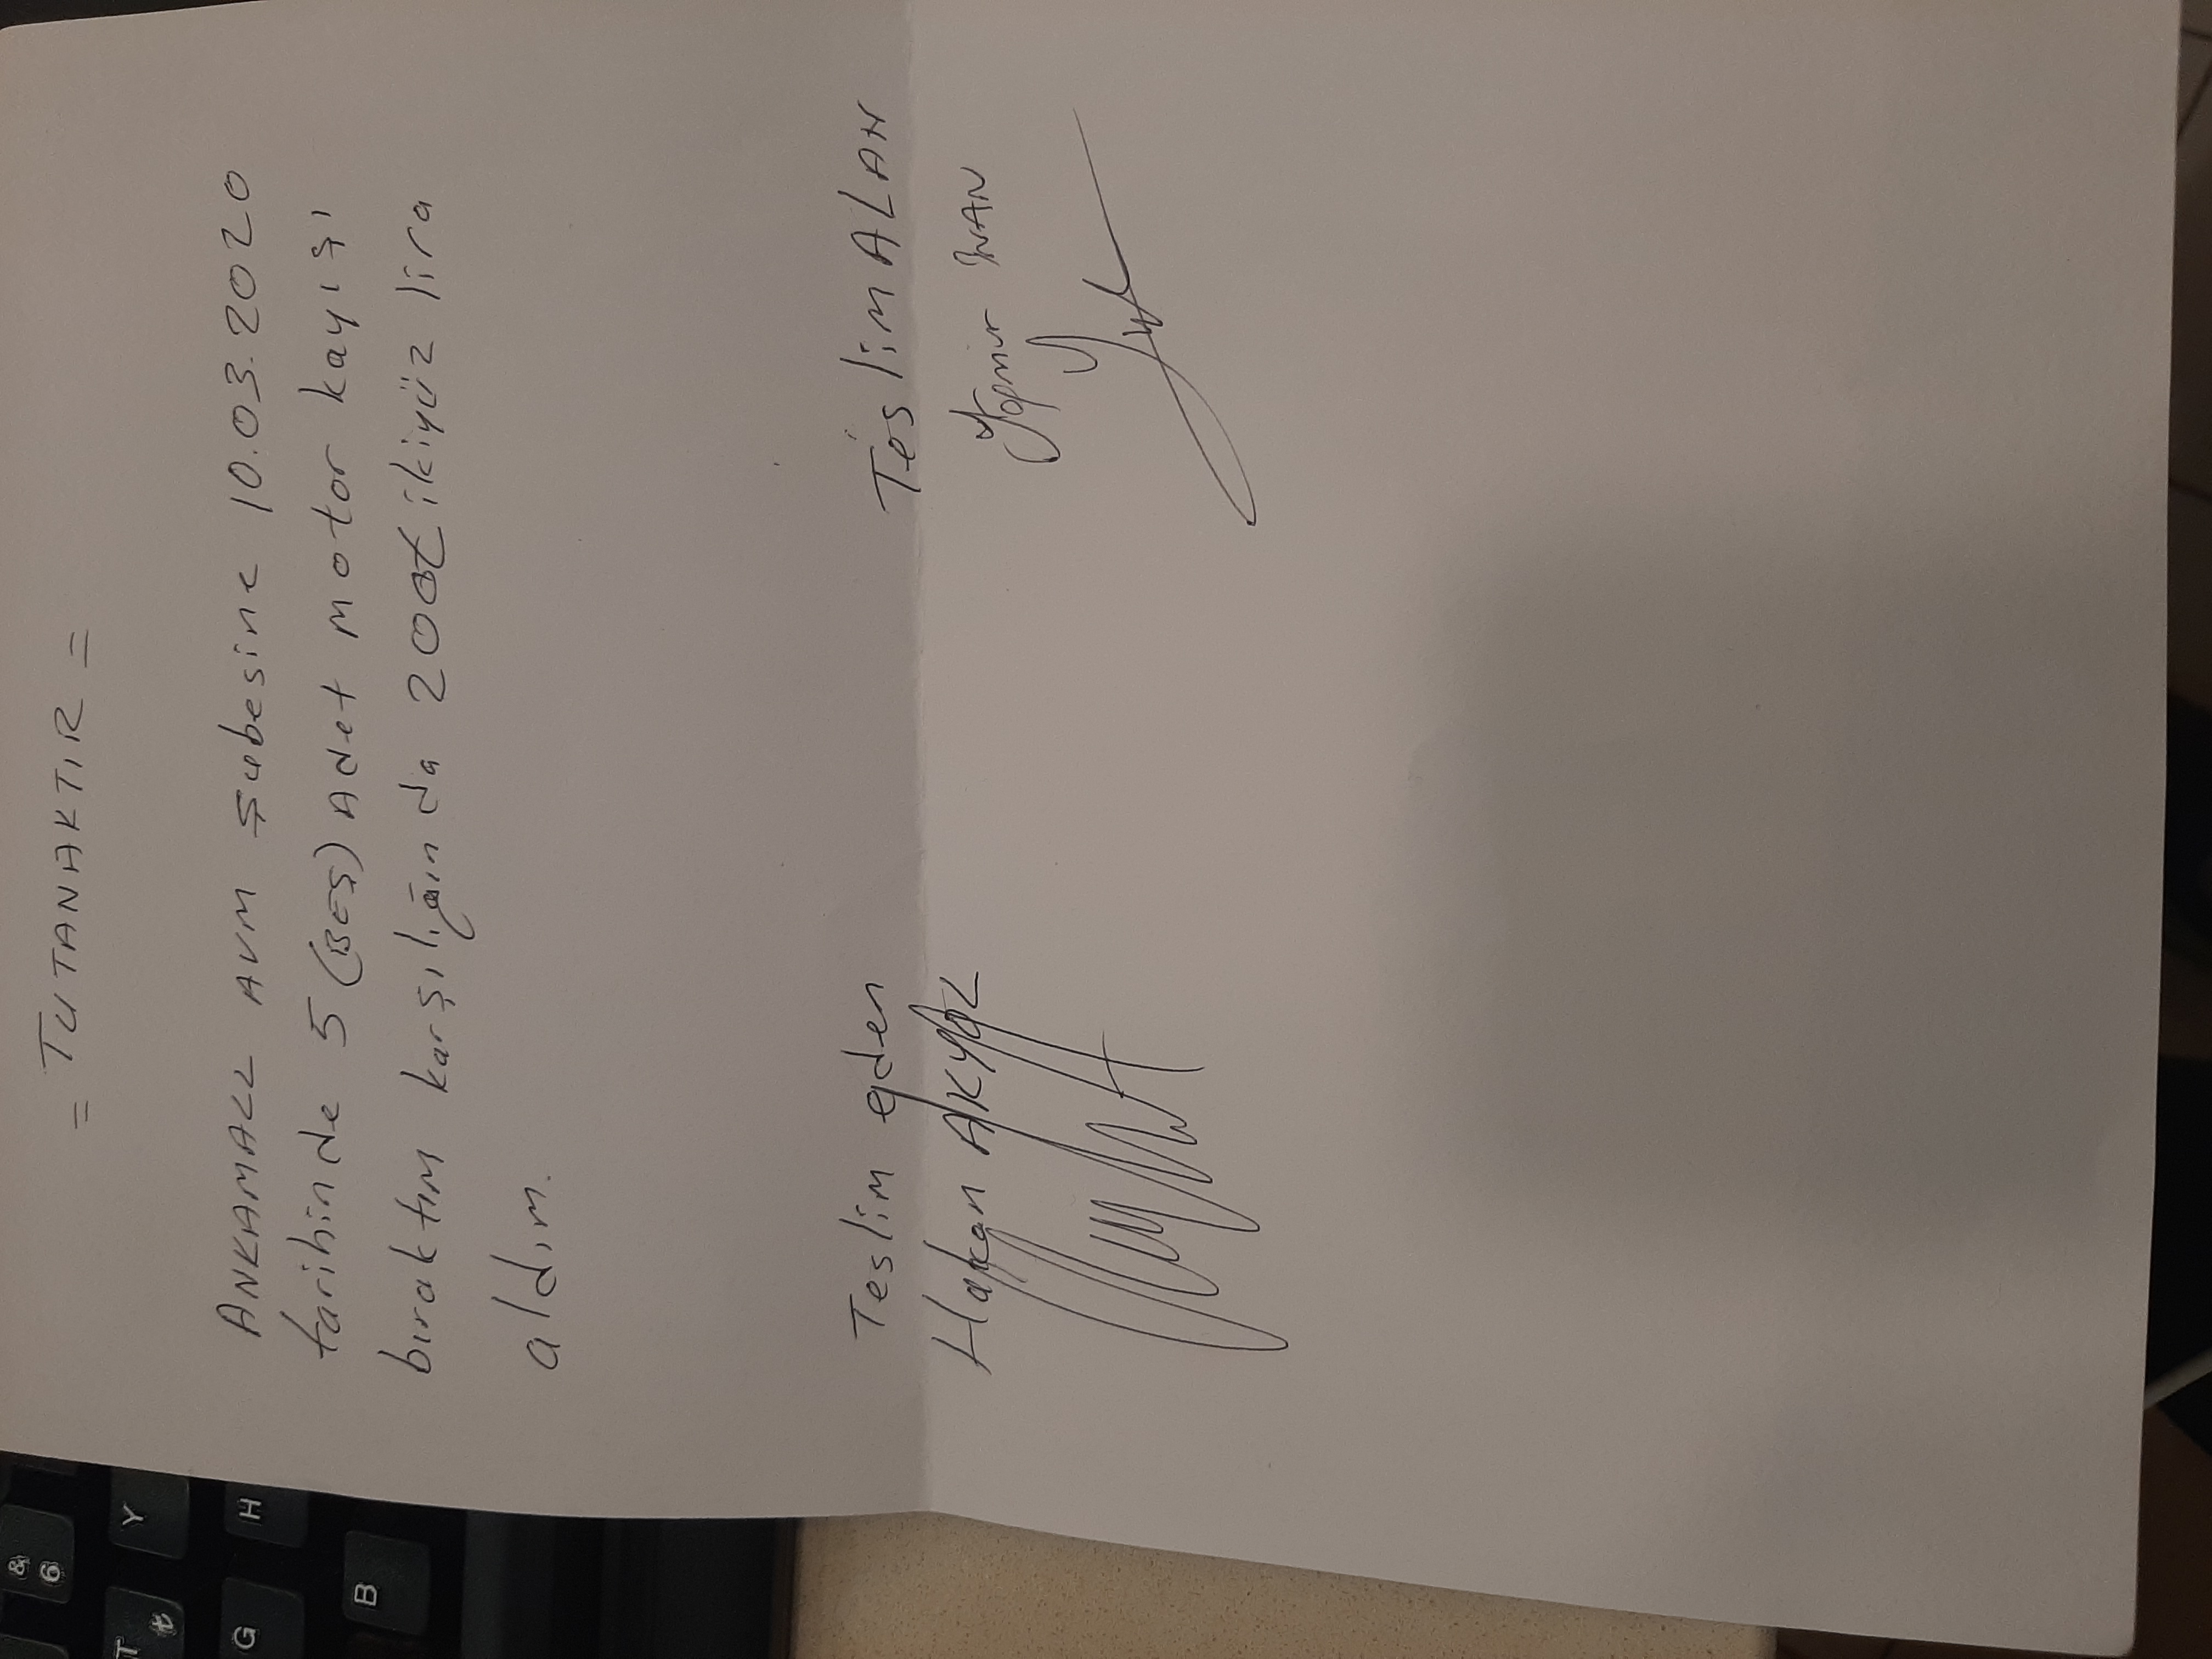 = TUTANAKTIR =
ANKAMALL AVM Şubesine 10.03.2020
tarihinde 5 (BEŞ) Adet motor kayışı
bıraktım karşılığında 200₺ ikiyüz lira
aldım.
Teslim eden
Hakan AKYOL
Teslim ALAN
İNAN
&
6
T
₺
Y
G
H
B